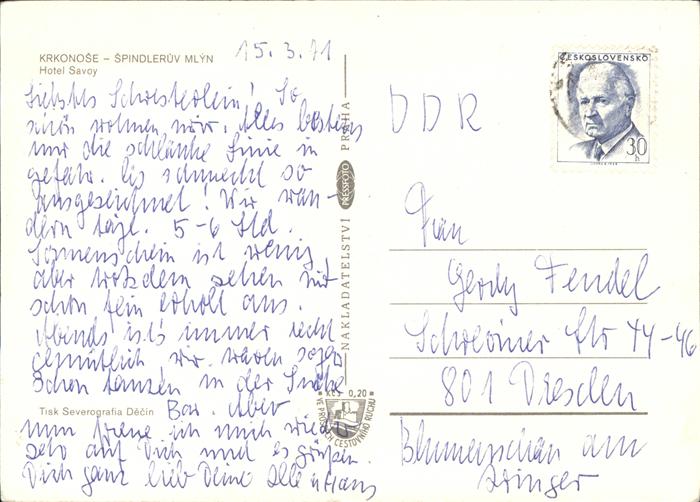 KRKONOŠE – ŠPINDLERŮV MLÝN
Hotel Savoy
15.3.71
Liebstes Schwesterlein! So
schön wohnen wir. Alles bestens
nur die schlanke Linie in
gefahr. Es schmeckt so
ausgezeichnet! Wir wan-
dern tägl. 5-6 Std.
Sonnenschein ist wenig,
aber trotzdem sehen wir
schon fein erholt aus.
Abends ist's immer recht
gemütlich, wir waren sogar
schon tanzen in der
Bar. Aber
nun freue ich mich wieder
sehr auf Dich und es grüßen
Dich ganz lieb Deine
Tisk Severografia Děčín
NAKLADATELSTVÍ PRESSFOTO PRAHA
Kčs 0,20
VE PROSPĚCH CESTOVNÍHO RUCHU
ČESKOSLOVENSKO
30 h
DDR
Frau
Gerdy Fendel
Str 44-46
801 Dresden
Blumenschau am
Zwinger